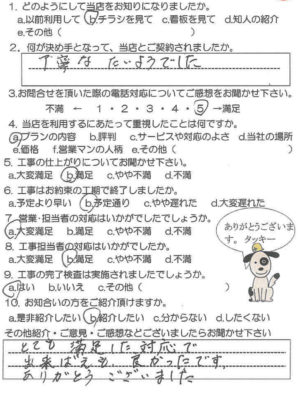 1. どのようにして当店をお知りになりましたか。
a.以前利用して b.チラシを見て c.看板を見て d.知人の紹介
e.その他( )
2. 何が決め手となって、当店とご契約されましたか。
丁寧な たいようでした
3.お問合せを頂いた際の電話対応についてご感想をお聞かせ下さい。
不満 ← 1・2・3・4・5 →満足
4. 当店を利用するにあたって重視したことは何ですか。
a.プランの内容 b.評判 c.サービスや対応のよさ d.当社の場所
e.価格 f.営業マンの人柄 e.その他( )
5. 工事の仕上がりについてお聞かせ下さい。
a.大変満足 b.満足 c.やや不満 d.不満
6. 工事はお約束の工期で終了しましたか。
a.予定より早い b.予定通り c.やや遅れた d.大変遅れた
7. 営業・担当者の対応はいかがでしたでしょうか。
a.大変満足 b.満足 c.やや不満 d.不満
8. 工事担当者の対応はいかがでしたか。
a.大変満足 b.満足 c.やや不満 d.不満
9. 工事の完了検査は実施されましたでしょうか。
a.はい b.いいえ c.その他( )
10. お知合いの方をご紹介頂けますか。
a.是非紹介したい b.紹介したい c.分からない d.したくない
その他紹介・ご意見・ご感想などございましたらお聞かせ下さい
とても 満足した 対応で
出来ばえも 良かったです。
ありがとう ございました
ありがとうございま
す。 タッキー